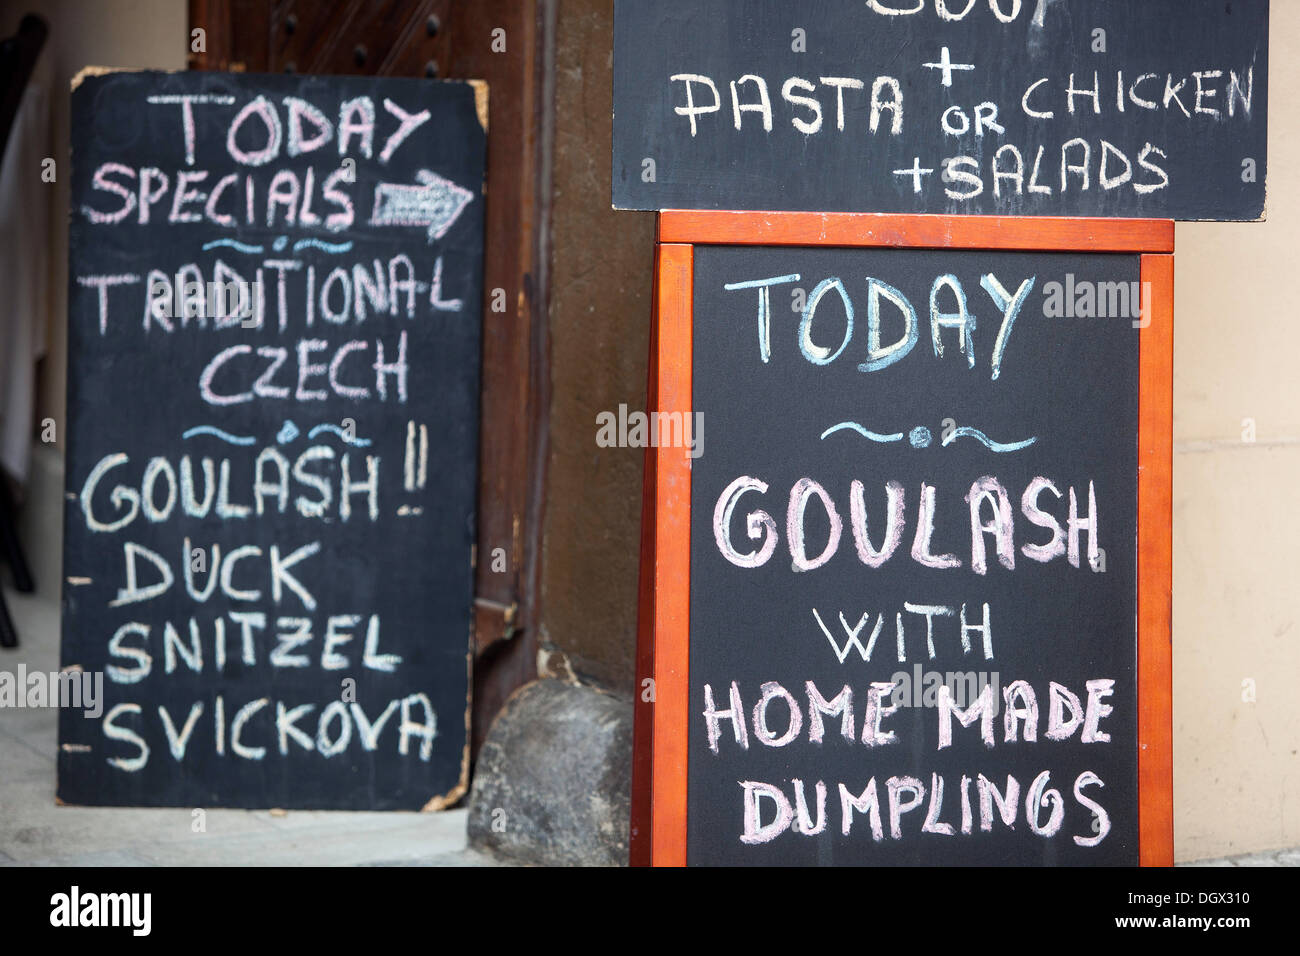 TODAY
SPECIALS
TRADITIONAL
CZECH
GOULASH!!
DUCK
SNITZEL
SVICKOVA
SOUP
+
PASTA OR CHICKEN
+ SALADS
TODAY
GOULASH
WITH
HOME MADE
DUMPLINGS
alamy
alamy stock photo
DGX310
www.alamy.com